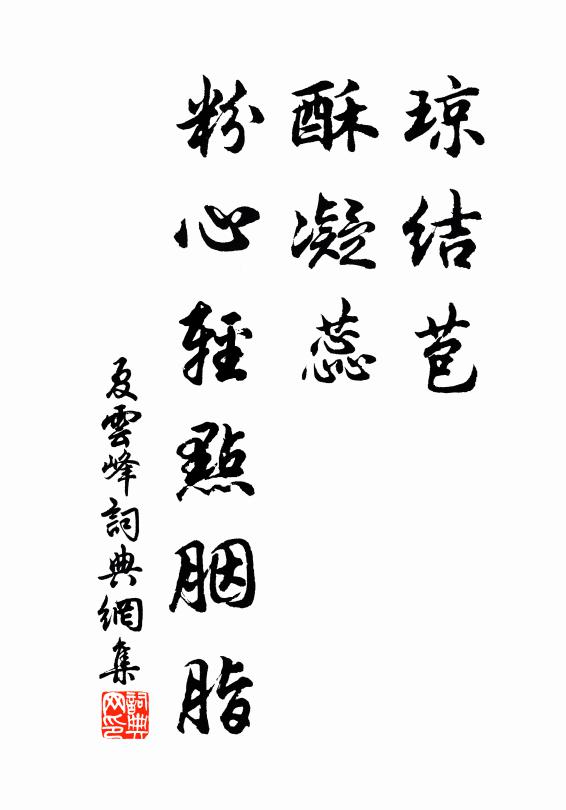 琼结苞
酥凝蕊
粉心輕點胭脂
夏雲峰詞典網集
詞典网印